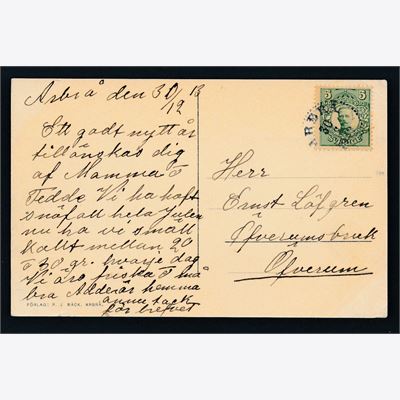 Arbrå den 30/12 13
Ett godt nytt år
tillönskas dig
af Mamma o
Tedde Vi ha haft
snöfall hela Julen
nu ha vi småll
kallt mellan 20
o 30 gr. hvarje dag
Vi äro friska o må
bra Adde är hemma
ännu tack
för brefvet
FÖRLAG: P. J. BÄCK, ARBRÅ.
5 5
SVERIGE
ARBRÅ
Herr
Ernst Löfgren
Öfverumsbruk
Öfverum